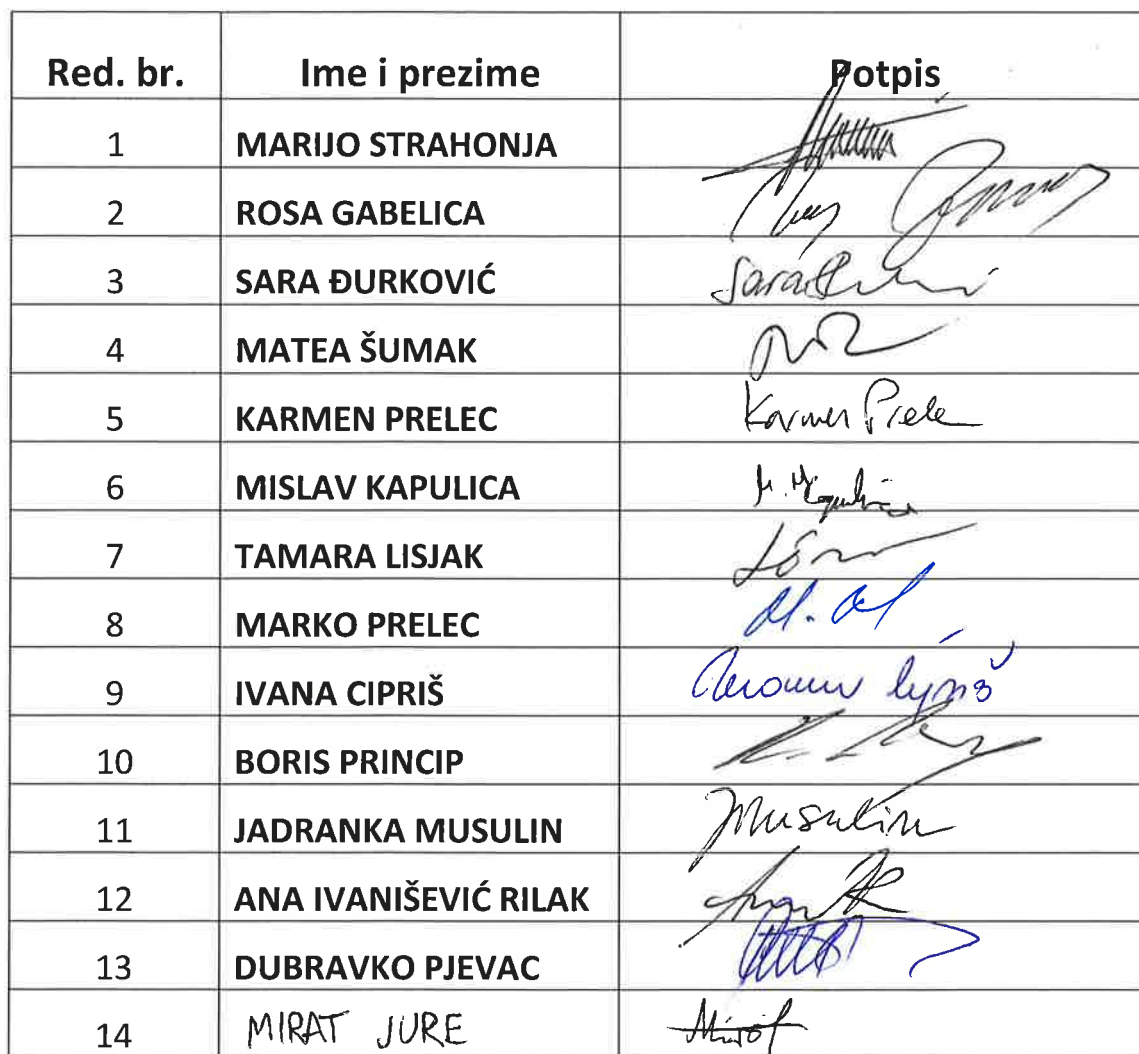 Red. br. Ime i prezime Potpis
1 MARIJO STRAHONJA
2 ROSA GABELICA
3 SARA ĐURKOVIĆ Sara
4 MATEA ŠUMAK
5 KARMEN PRELEC Karmen Prelec
6 MISLAV KAPULICA M. Kapulica
7 TAMARA LISJAK
8 MARKO PRELEC
9 IVANA CIPRIŠ
10 BORIS PRINCIP
11 JADRANKA MUSULIN JMusulin
12 ANA IVANIŠEVIĆ RILAK
13 DUBRAVKO PJEVAC
14 MIRAT JURE